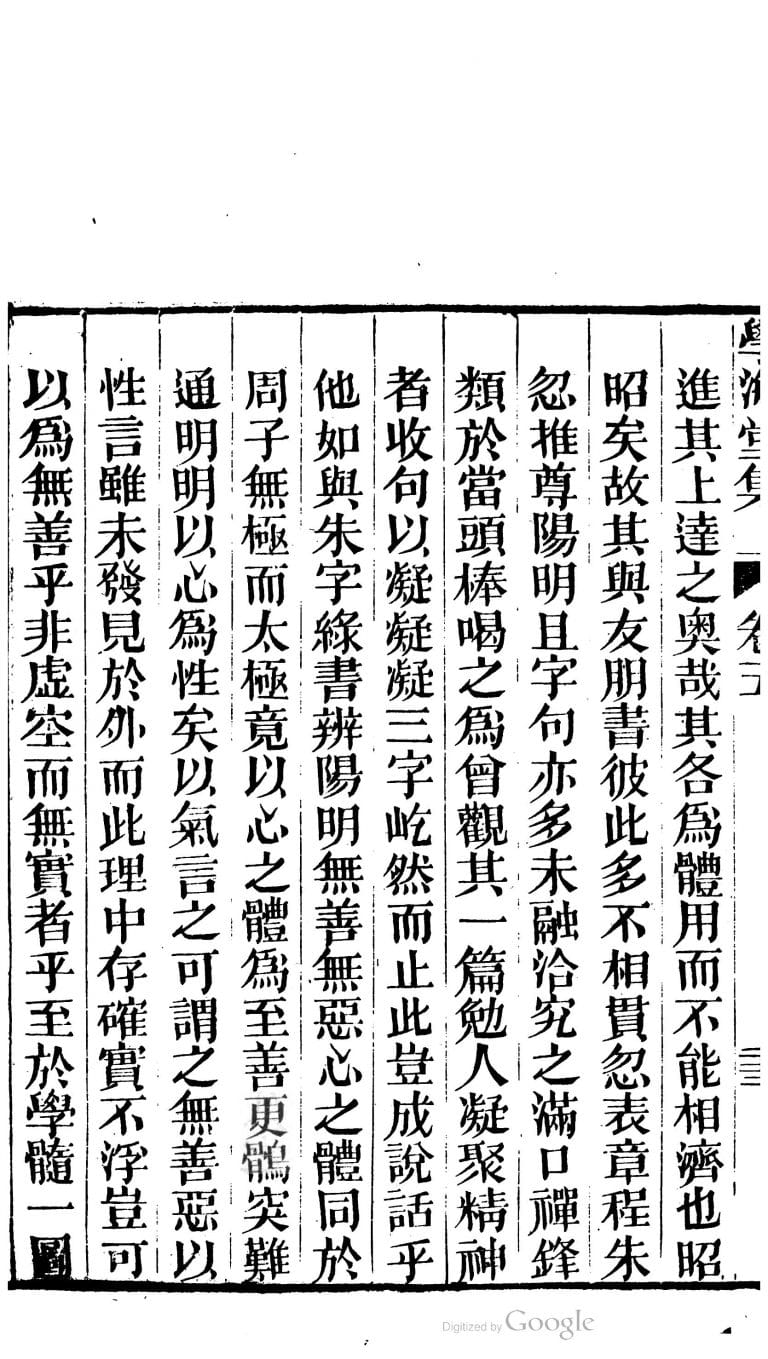 學海堂集
卷
進其上達之奧哉其各爲體用而不能相濟也昭
昭矣故其與友朋書彼此多不相貫忽表章程朱
忽推尊陽明且字句亦多未融洽究之滿口禪鋒
類於當頭棒喝之爲曾觀其一篇勉人凝聚精神
者收句以凝凝凝三字屹然而止此豈成說話乎
他如與朱字綠書辨陽明無善無惡心之體同於
周子無極而太極竟以心之體爲至善更鶻突難
通明明以心爲性矣以氣言之可謂之無善惡以
性言雖未發見於外而此理中存確實不浮豈可
以爲無善乎非虛空而無實者乎至於學髓一圖
Digitized by Google